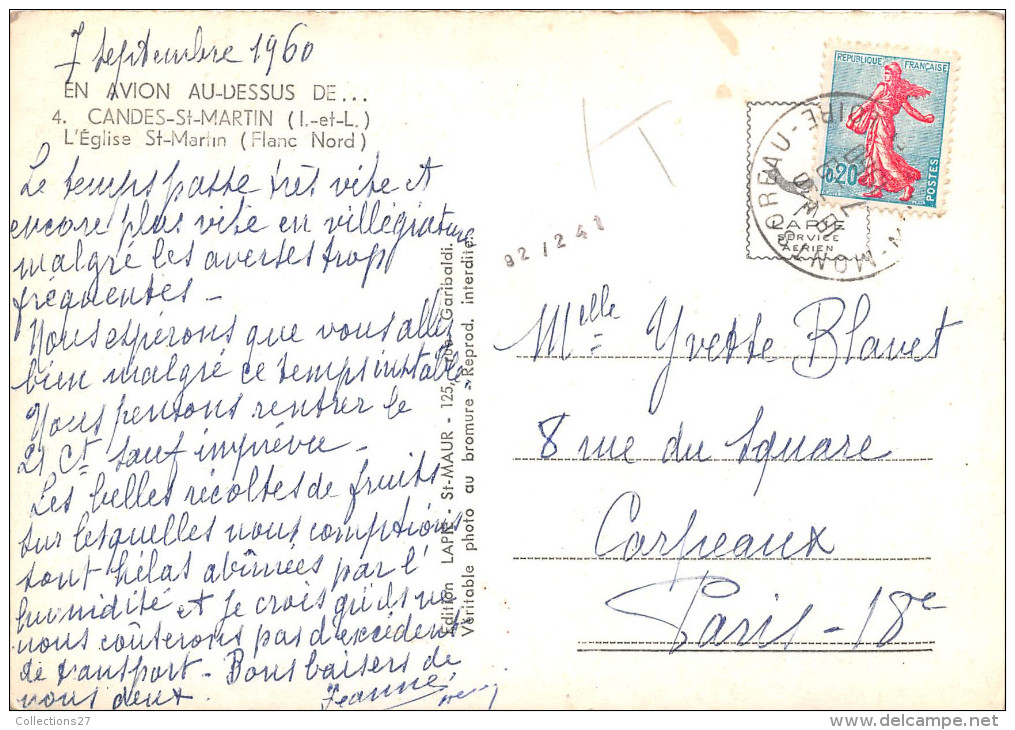 7 septembre 1960
EN AVION AU-DESSUS DE...
4. CANDES-St-MARTIN (I.-et-L.)
L'Église St-Martin (Flanc Nord)
Le temps passe très vite et
encore plus vite en villégiature
malgré les averses trop
fréquentes -
Nous espérons que vous allez
bien malgré ce temps instable
Nous pensons rentrer le
21 Ct sauf imprévu -
Les belles récoltes de fruits
sur lesquelles nous comptions
sont hélas abîmées par l'
humidité et je crois qu'ils ne
nous coûterons pas d'excédent
de transport - Bons baisers de
nous deux.
Jeanne
Edition LAPIE - St-MAUR - 125, Garibaldi.
Véritable photo au bromure - Reprod. interdite.
92/241
K
RÉPUBLIQUE FRANÇAISE
0,20
POSTES
LAPIE
SERVICE
AÉRIEN
Melle Yvette Blavet
8 rue du Square
Carpeaux
Paris - 18e
Collections27